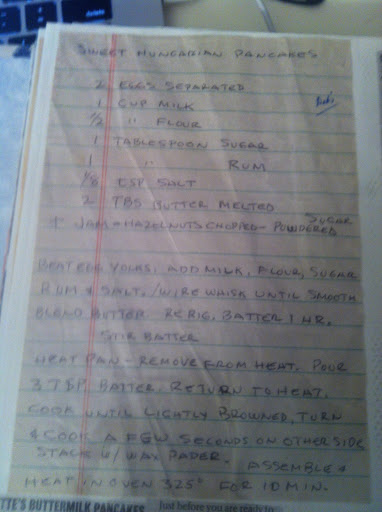 SWEET HUNGARIAN PANCAKES
2 EGGS SEPARATED
1 CUP MILK
1/2 " FLOUR
1 TABLESPOON SUGAR
1 " RUM
1/8 TSP SALT
2 TBS BUTTER MELTED
+ JAM + HAZELNUTS CHOPPED - POWDERED SUGAR
BEAT EGG YOLKS, ADD MILK, FLOUR, SUGAR
RUM & SALT, W/WIRE WHISK UNTIL SMOOTH
BLEND BUTTER REFRIG. BATTER 1 HR.
STIR BATTER
HEAT PAN - REMOVE FROM HEAT. POUR
3 TBP BATTER. RETURN TO HEAT.
COOK UNTIL LIGHTLY BROWNED, TURN
& COOK A FEW SECONDS ON OTHER SIDE
STACK W/ WAX PAPER. ASSEMBLE &
HEAT IN OVEN 325° FOR 10 MIN.
TTE'S BUTTERMILK PANCAKES Just before you are ready to